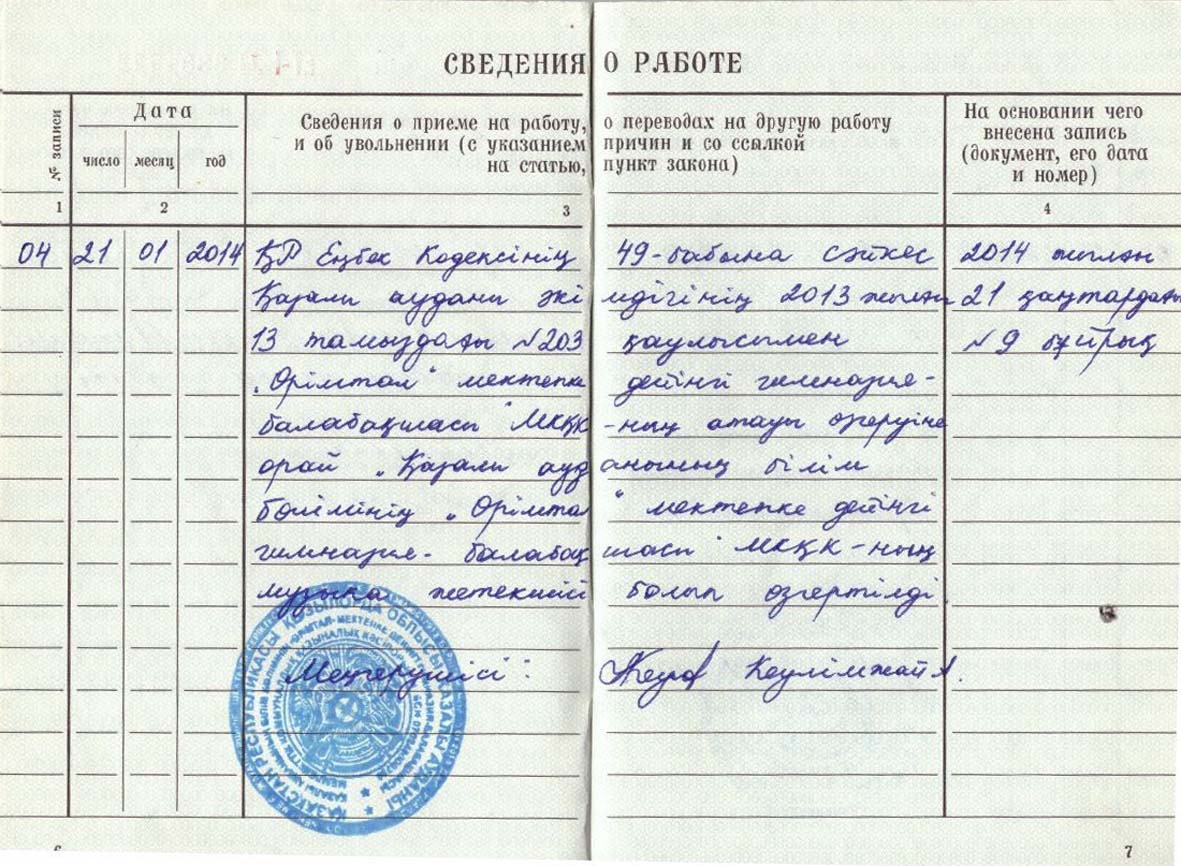 СВЕДЕНИЯ О РАБОТЕ
№ записи
Дата
число месяц год
Сведения о приеме на работу, о переводах на другую работу
и об увольнении (с указанием причин и со ссылкой
на статью, пункт закона)
На основании чего
внесена запись
(документ, его дата
и номер)
1 2 3 4
04 21 01 2014 ҚР Еңбек Кодексінің 49-бабына сәйкес 2014 жылғы
Қазалы ауданы әкімдігінің 2013 жылғы 21 қаңтардағы
13 тамыздағы №203 қаулысымен №9 бұйрық
„Өрімтал" мектепке дейінгі гимназия-
балабақшасы" МКҚК-ның атауы өзгеруіне
орай „Қазалы ауданының білім
бөлімінің „Өрімтал" мектепке дейінгі
гимназия- балабақшасы" МКҚК-ның
музыка жетекшісі болып өзгертілді.
Меңгерушісі:
ҚАЗАҚСТАН РЕСПУБЛИКАСЫ ҚЫЗЫЛОРДА ОБЛЫСЫ ҚАЗАЛЫ АУДАНЫ
6 7